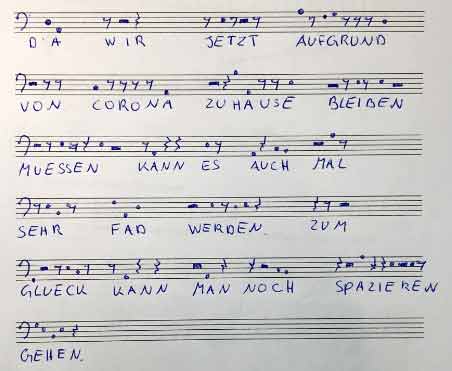 DA WIR JETZT AUFGRUND
VON CORONA ZUHAUSE BLEIBEN
MUESSEN KANN ES AUCH MAL
SEHR FAD WERDEN. ZUM
GLUECK KANN MAN NOCH SPAZIEREN
GEHEN.